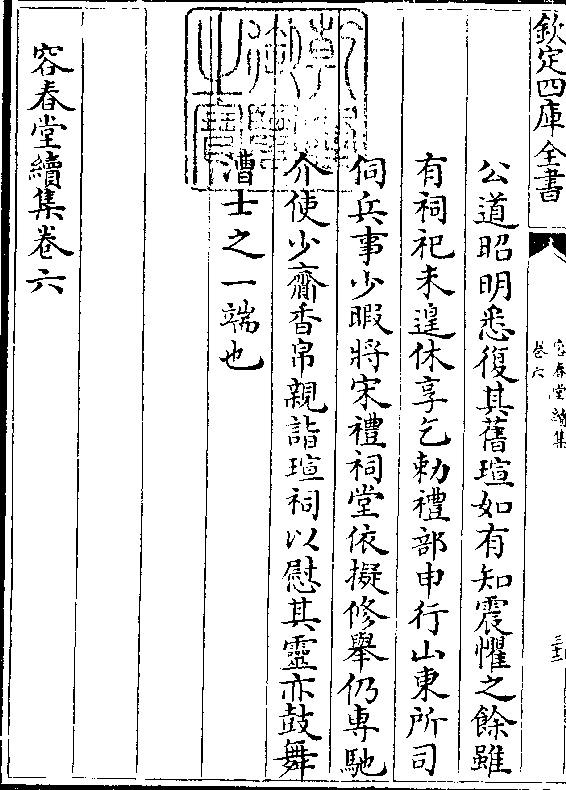 欽定四庫全書
容春堂續集
卷六
公道昭明悉復其舊瑄如有知震懼之餘雖
有祠祀未遑休享乞勅禮部申行山東所司
伺兵事少暇將宋禮祠堂依擬修舉仍專馳
介使少齎香帛親詣瑄祠以慰其靈亦鼓舞
漕士之一端也
乾隆御覽之寶
容春堂續集卷六